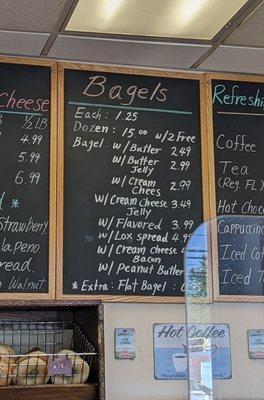 Cheese
1/2 LB
4.99
5.99
6.99
Strawberry
Jalapeno
Spread.
on Walnut
Bagels
Each: 1.25
Dozen: 15.00 w/2 Free
Bagel: w/Butter 2.49
w/Butter 2.99
Jelly
w/Cream 2.99
Chees
w/Cream Cheese 3.49
Jelly
w/Flavored 3.99
w/Lox spread 4.99
w/Cream cheese
Bacon
w/Peanut Butter
*Extra: Flat Bagel
Coffee
Tea
(Reg. FL)
Hot Choco
Cappuccino
Iced Co
Iced T
Hot Coffee